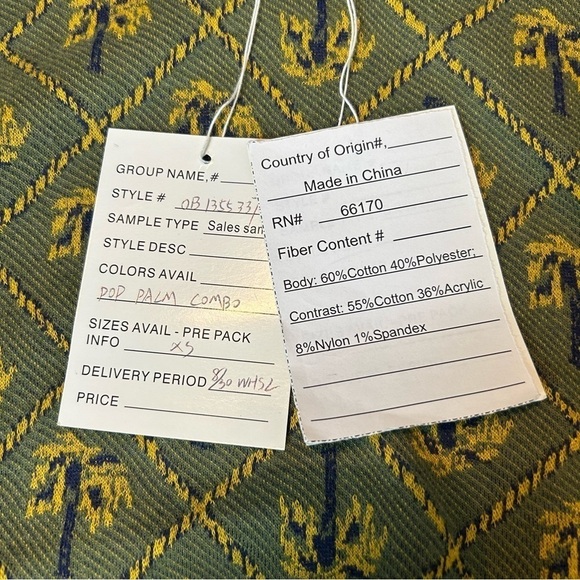 GROUP NAME,#
STYLE #
SAMPLE TYPE Sales sam
STYLE DESC
COLORS AVAIL
POP PALM COMBO
SIZES AVAIL - PRE PACK
INFO XS
DELIVERY PERIOD 8/30 WHSL
PRICE
Country of Origin#,
Made in China
RN# 66170
Fiber Content #
Body: 60%Cotton 40%Polyester;
Contrast: 55%Cotton 36%Acrylic
8%Nylon 1%Spandex